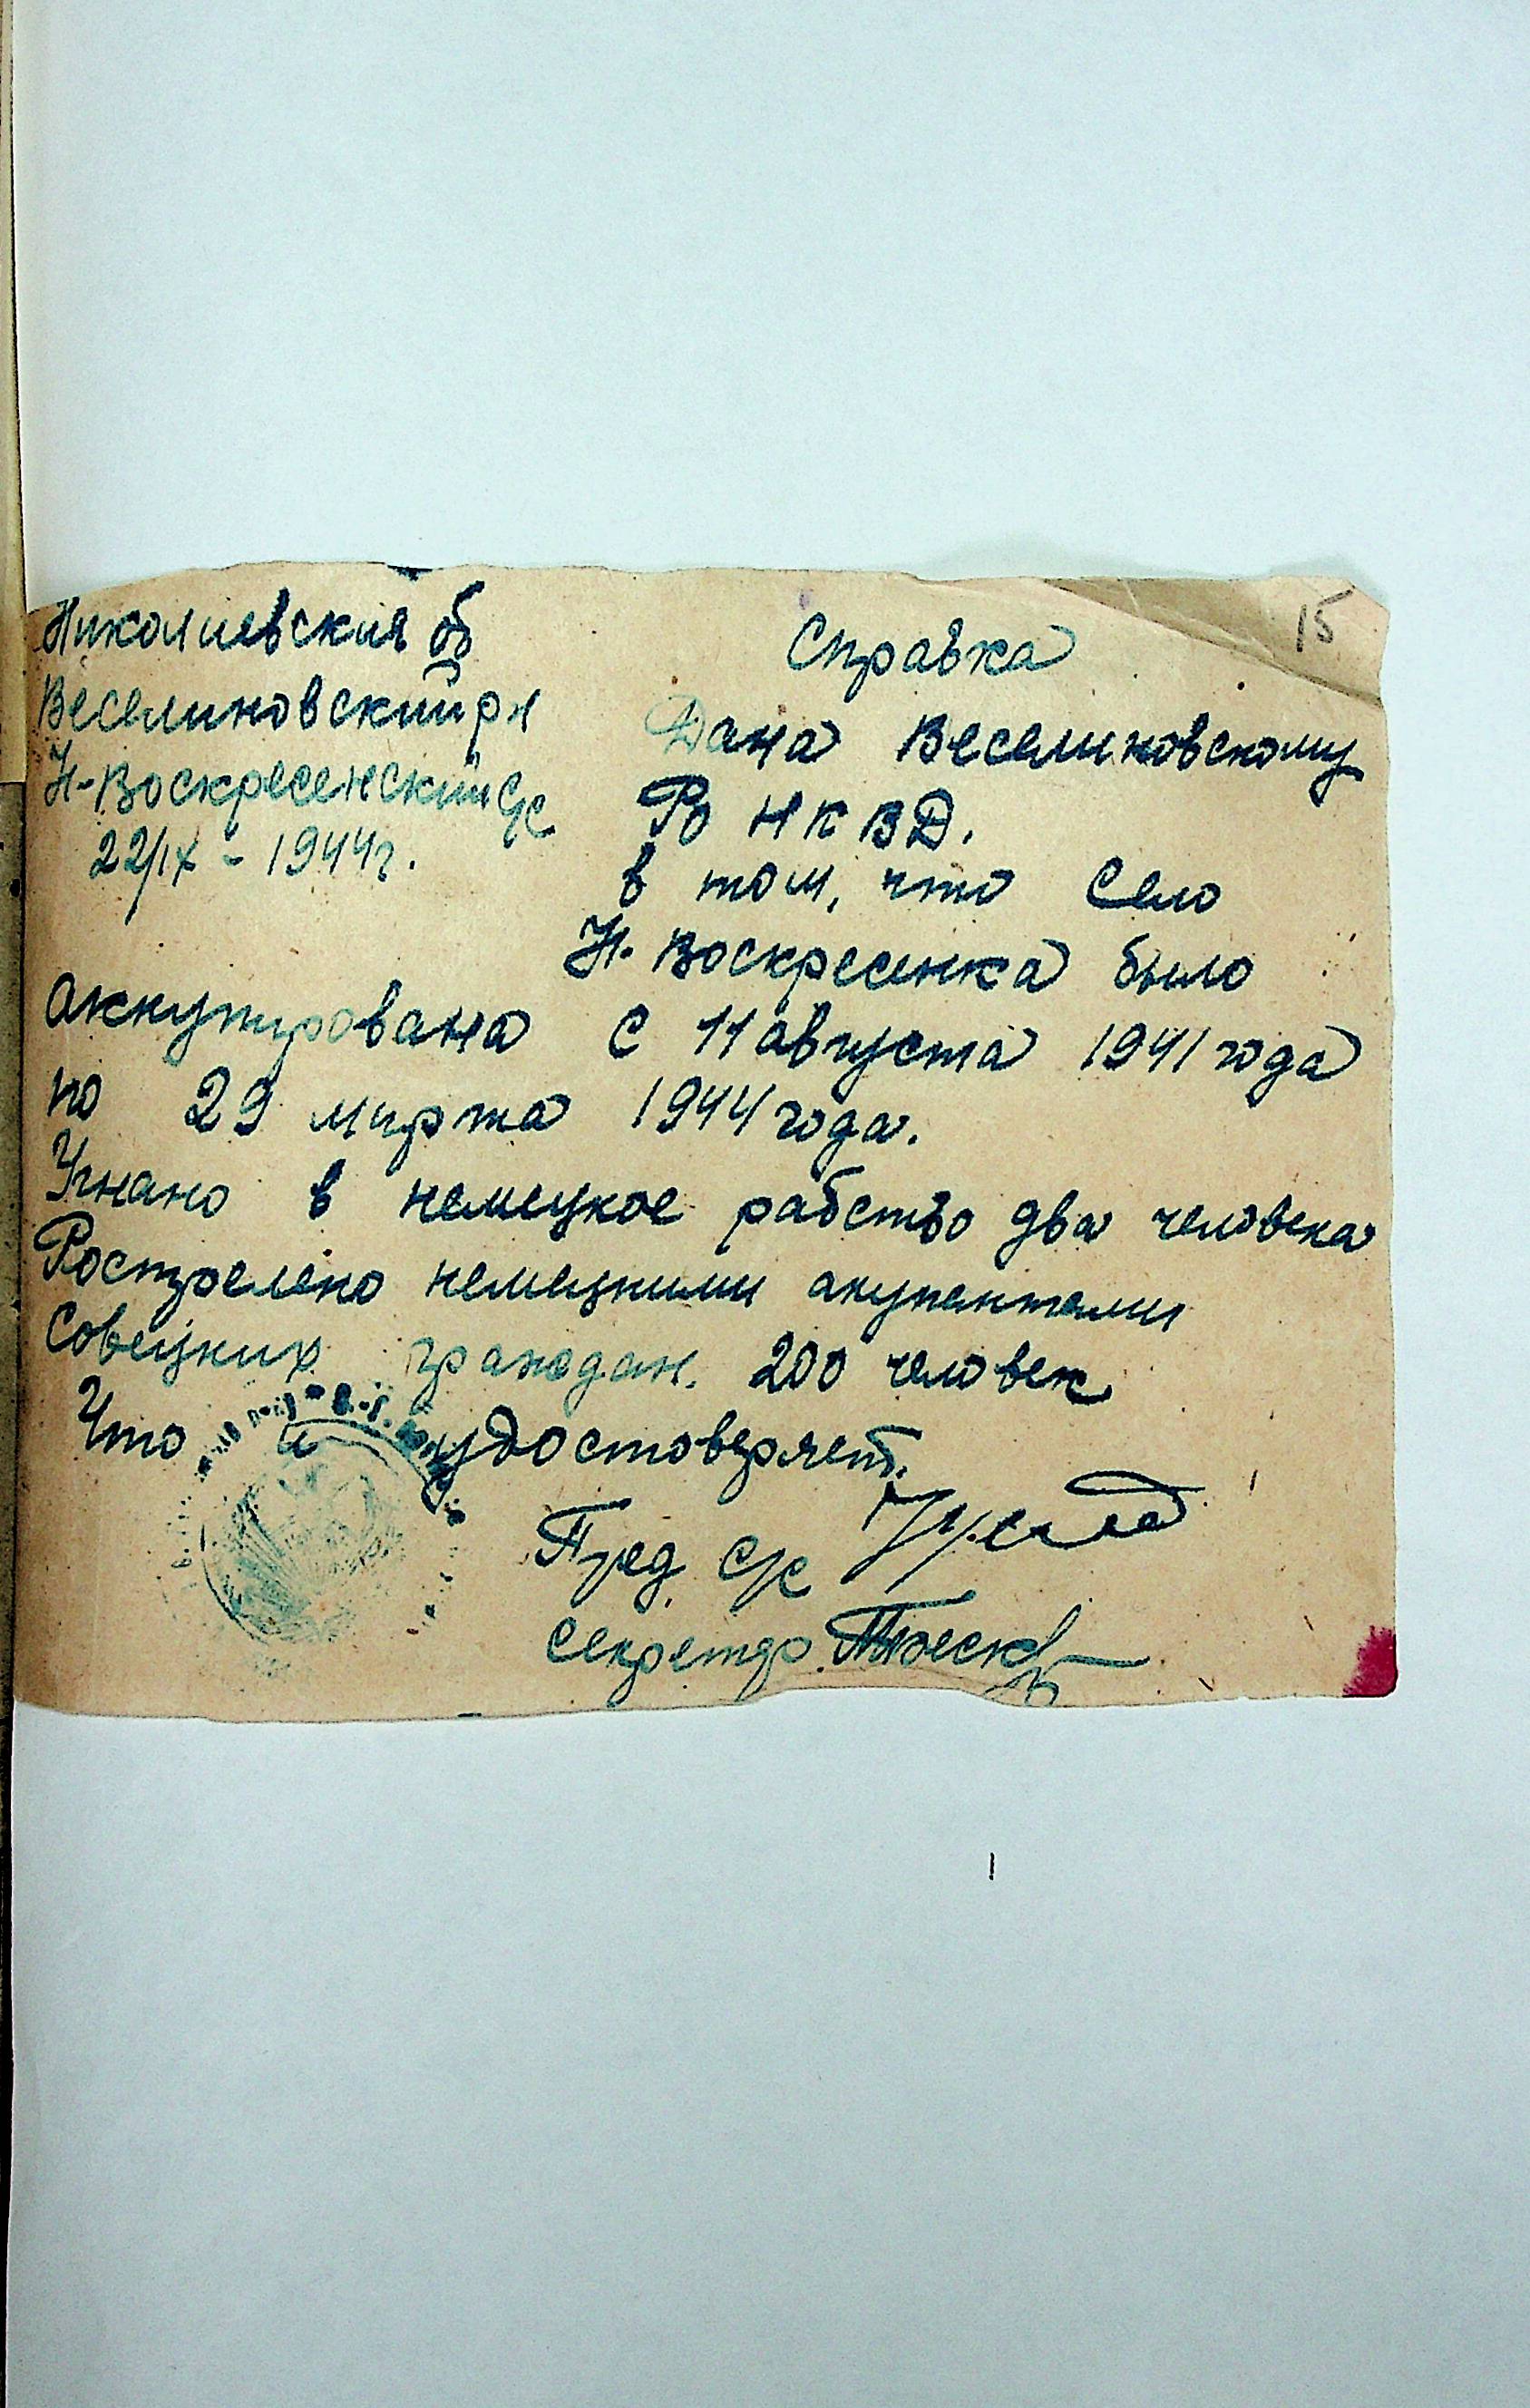 15
Николаевская об
Веселиновский р-н
Н-Воскресенский С/С
22/IX - 1944г.
Справка
Дана Веселиновскому
Ро НКВД.
в том, что Село
Н. Воскресенка было
Аккупирована с 11 августа 1941 года
по 29 марта 1944 года.
Угнано в немецкое рабство два человека
Рострелено немецкими акупантами
Совецких граждан. 200 человек
Что и удостоверяет.
Пред. С/С
Секретар.